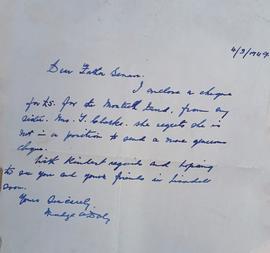 4/3/1949
Dear Father Senan.
I enclose a cheque
for £5. for the Monteith Fund, from my
sister. Mrs. T. Clarke. she regrets she is
not in a position to send a more generous
cheque.
With kindest regards and hoping
to see you and your friends in
soon.
Yours Sincerely,
Madge O'Daly